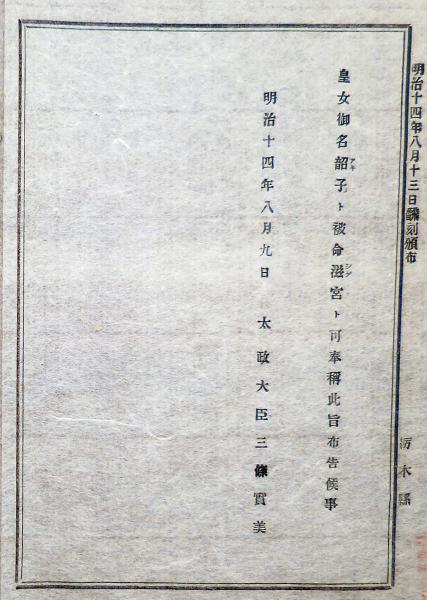 明治十四年八月十三日飜刻頒布
栃木縣
皇女御名韶子ト被命滋宮ト可奉稱此旨布告候事
アキ
シゲ
明治十四年八月九日 太政大臣三條實美